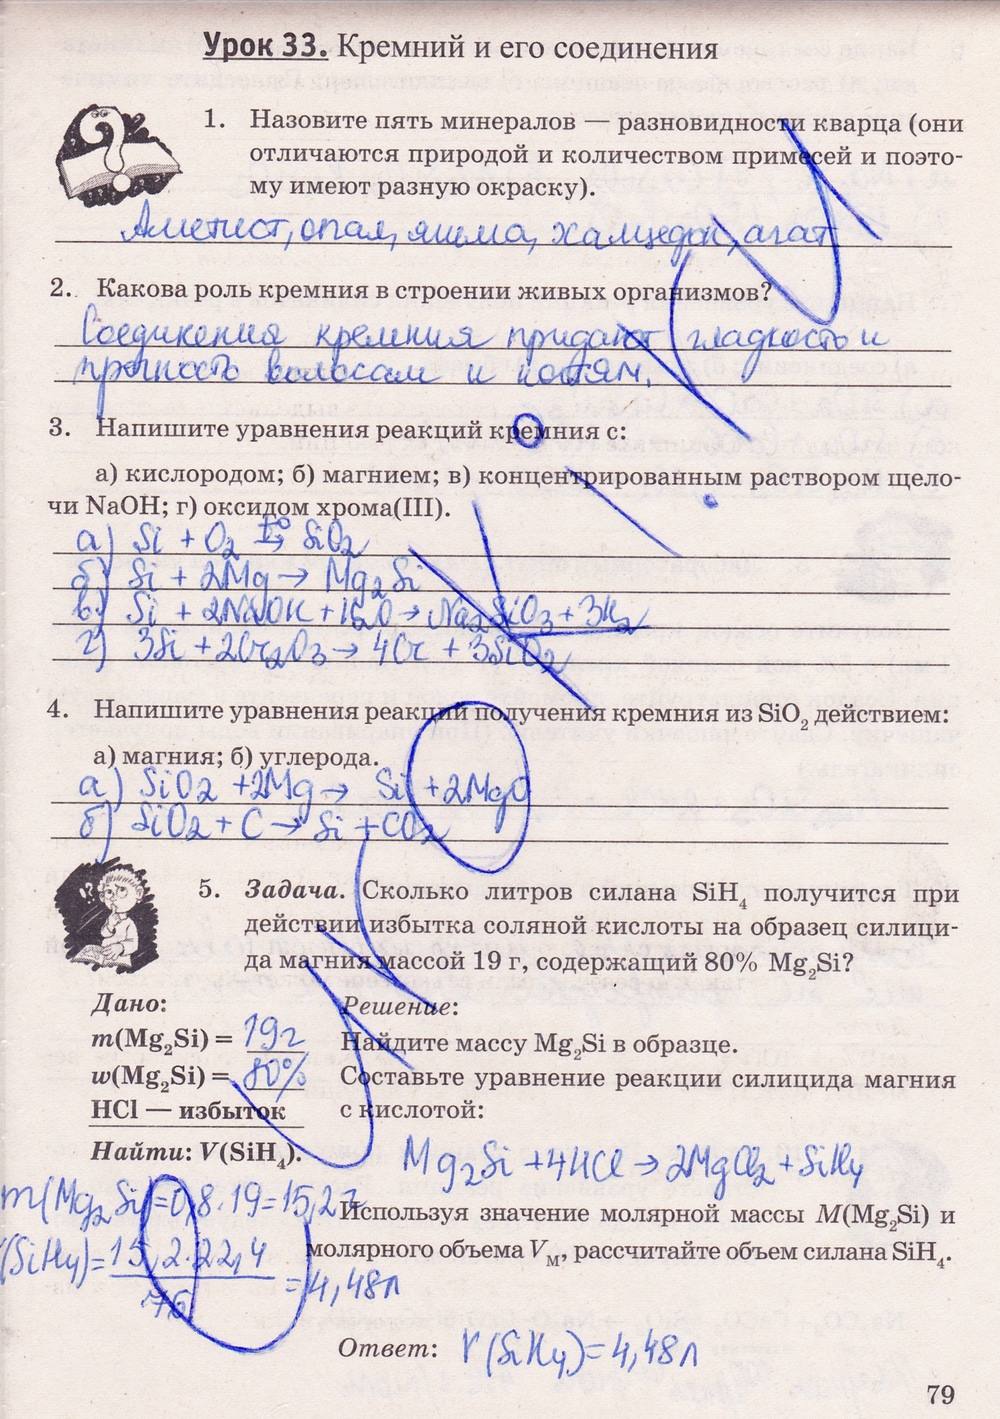 Урок 33. Кремний и его соединения
1. Назовите пять минералов — разновидности кварца (они
отличаются природой и количеством примесей и поэто-
му имеют разную окраску).
Аметист, опал, яшма, халцедон, агат
2. Какова роль кремния в строении живых организмов?
Соединения кремния придают гладкость и
прочность волосам и ногтям.
3. Напишите уравнения реакций кремния с:
а) кислородом; б) магнием; в) концентрированным раствором щело-
чи NaOH; г) оксидом хрома(III).
а) Si + O₂ t°→ SiO₂
б) Si + 2Mg → Mg₂Si
в) Si + 2NaOH + H₂O → Na₂SiO₃ + 3H₂
г) 3Si + 2Cr₂O₃ → 4Cr + 3SiO₂
4. Напишите уравнения реакций получения кремния из SiO₂ действием:
а) магния; б) углерода.
а) SiO₂ + 2Mg → Si + 2MgO
б) SiO₂ + C → Si + CO₂
5. Задача. Сколько литров силана SiH₄ получится при
действии избытка соляной кислоты на образец силици-
да магния массой 19 г, содержащий 80% Mg₂Si?
Дано:
m(Mg₂Si) = 19г
w(Mg₂Si) = 80%
HCl — избыток
Найти: V(SiH₄).
Решение:
Найдите массу Mg₂Si в образце.
Составьте уравнение реакции силицида магния
с кислотой:
Mg₂Si + 4HCl → 2MgCl₂ + SiH₄
m(Mg₂Si) = 0,8 · 19 = 15,2 г
Используя значение молярной массы M(Mg₂Si) и
молярного объема Vм, рассчитайте объем силана SiH₄.
(SiH₄) = 15,2 · 22,4
76
= 4,48л
Ответ: V(SiH₄) = 4,48 л
79